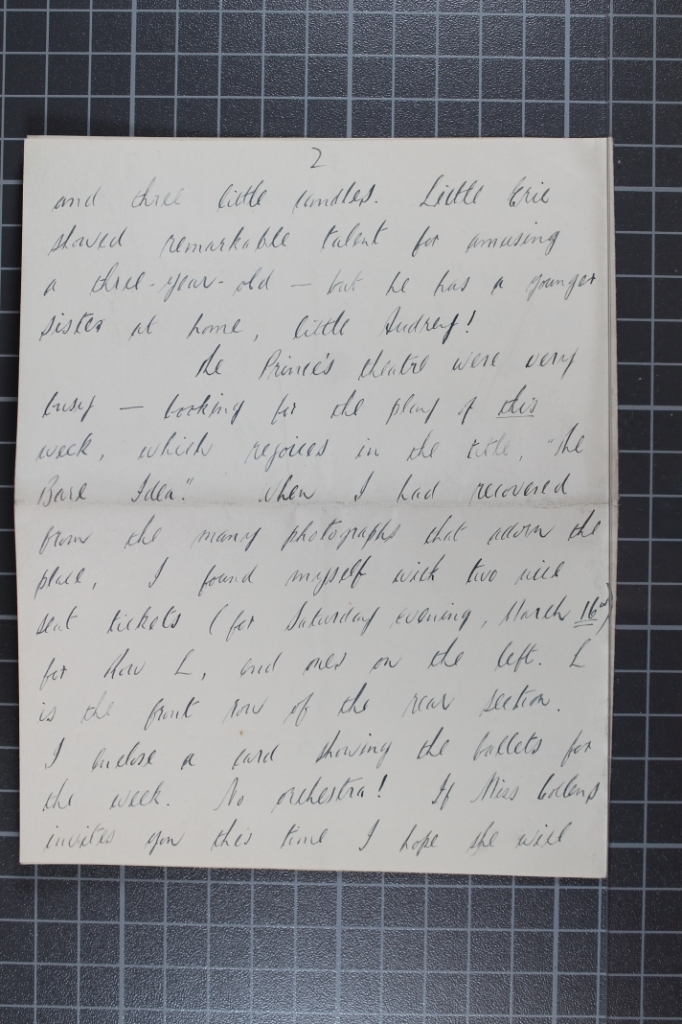 2
and three little candles. Little Eric
showed remarkable talent for amusing
a three-year-old — but he has a younger
sister at home, little Audrey!
The Prince's theatre were very
busy — booking for the play of this
week, which rejoices in the title, "The
Bare Idea." When I had recovered
from the many photographs that adorn the
place, I found myself with two
seat tickets (for Saturday evening, March 16th)
for Row L, and ones on the left. L
is the front row of the rear section.
I enclose a card showing the ballets for
the week. No orchestra! If Miss
invites you this time I hope she will